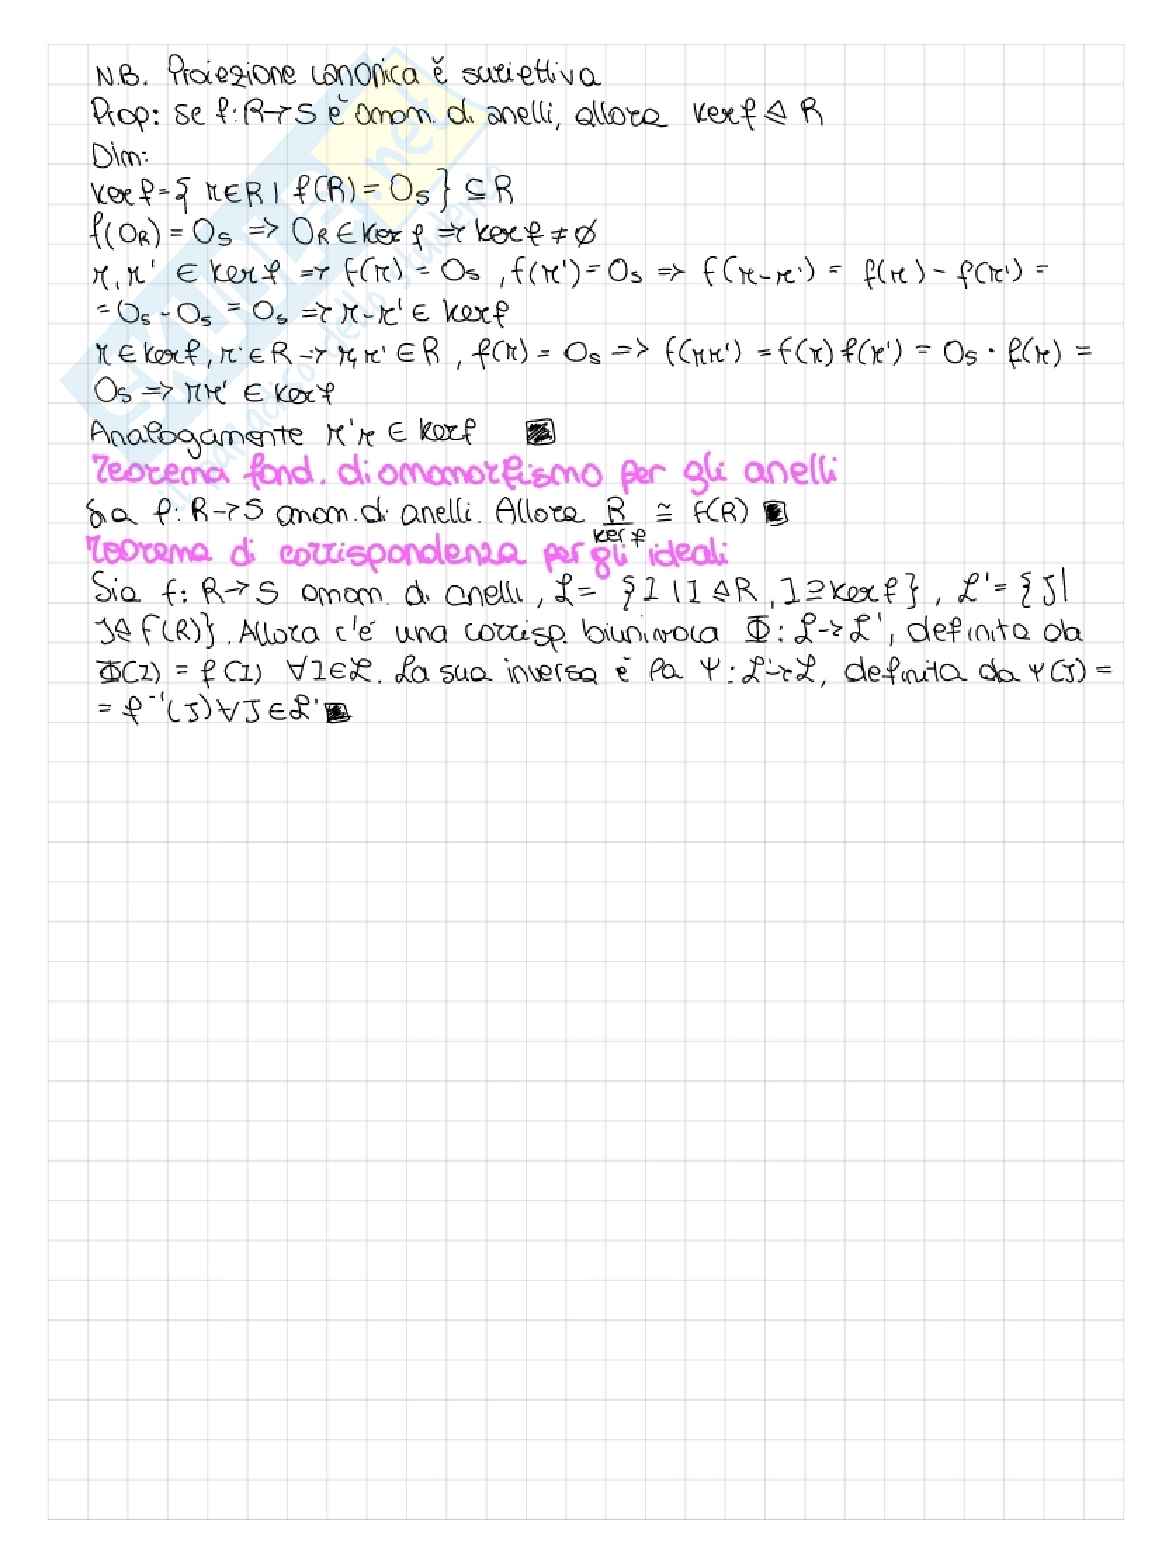 N.B. Proiezione canonica è suriettiva
Prop: se f: R→S è omom. di anelli, allora kerf ⊴ R
Dim:
kerf = { r∈R | f(R) = 0s } ⊆ R
f(0R) = 0s => 0R ∈ ker f => kerf ≠ ∅
r, r' ∈ kerf => f(r) = 0s , f(r') = 0s => f(r-r') = f(r) - f(r') =
= 0s - 0s = 0s => r-r' ∈ kerf
r ∈ kerf, r' ∈ R → r, r' ∈ R , f(r) = 0s => f(rr') = f(r) f(r') = 0s · f(r) =
0s => rr' ∈ kerf
Analogamente r'r ∈ kerf ■
Teorema fond. di omomorfismo per gli anelli
Sia f: R→S omom. di anelli. Allora R/ker f ≅ f(R) ■
Teorema di corrispondenza per gli ideali
Sia f: R→S omom. di anelli, ℒ = { I | I ⊴ R , I ⊇ kerf } , ℒ' = { J |
J ⊴ f(R)}. Allora c'é una corrisp. biunivoca Φ: ℒ→ℒ', definita da
Φ(I) = f(I) ∀I∈ℒ. La sua inversa è la Ψ: ℒ'→ℒ, definita da Ψ(J) =
= f⁻¹(J) ∀J∈ℒ' ■
SKUOLA.net